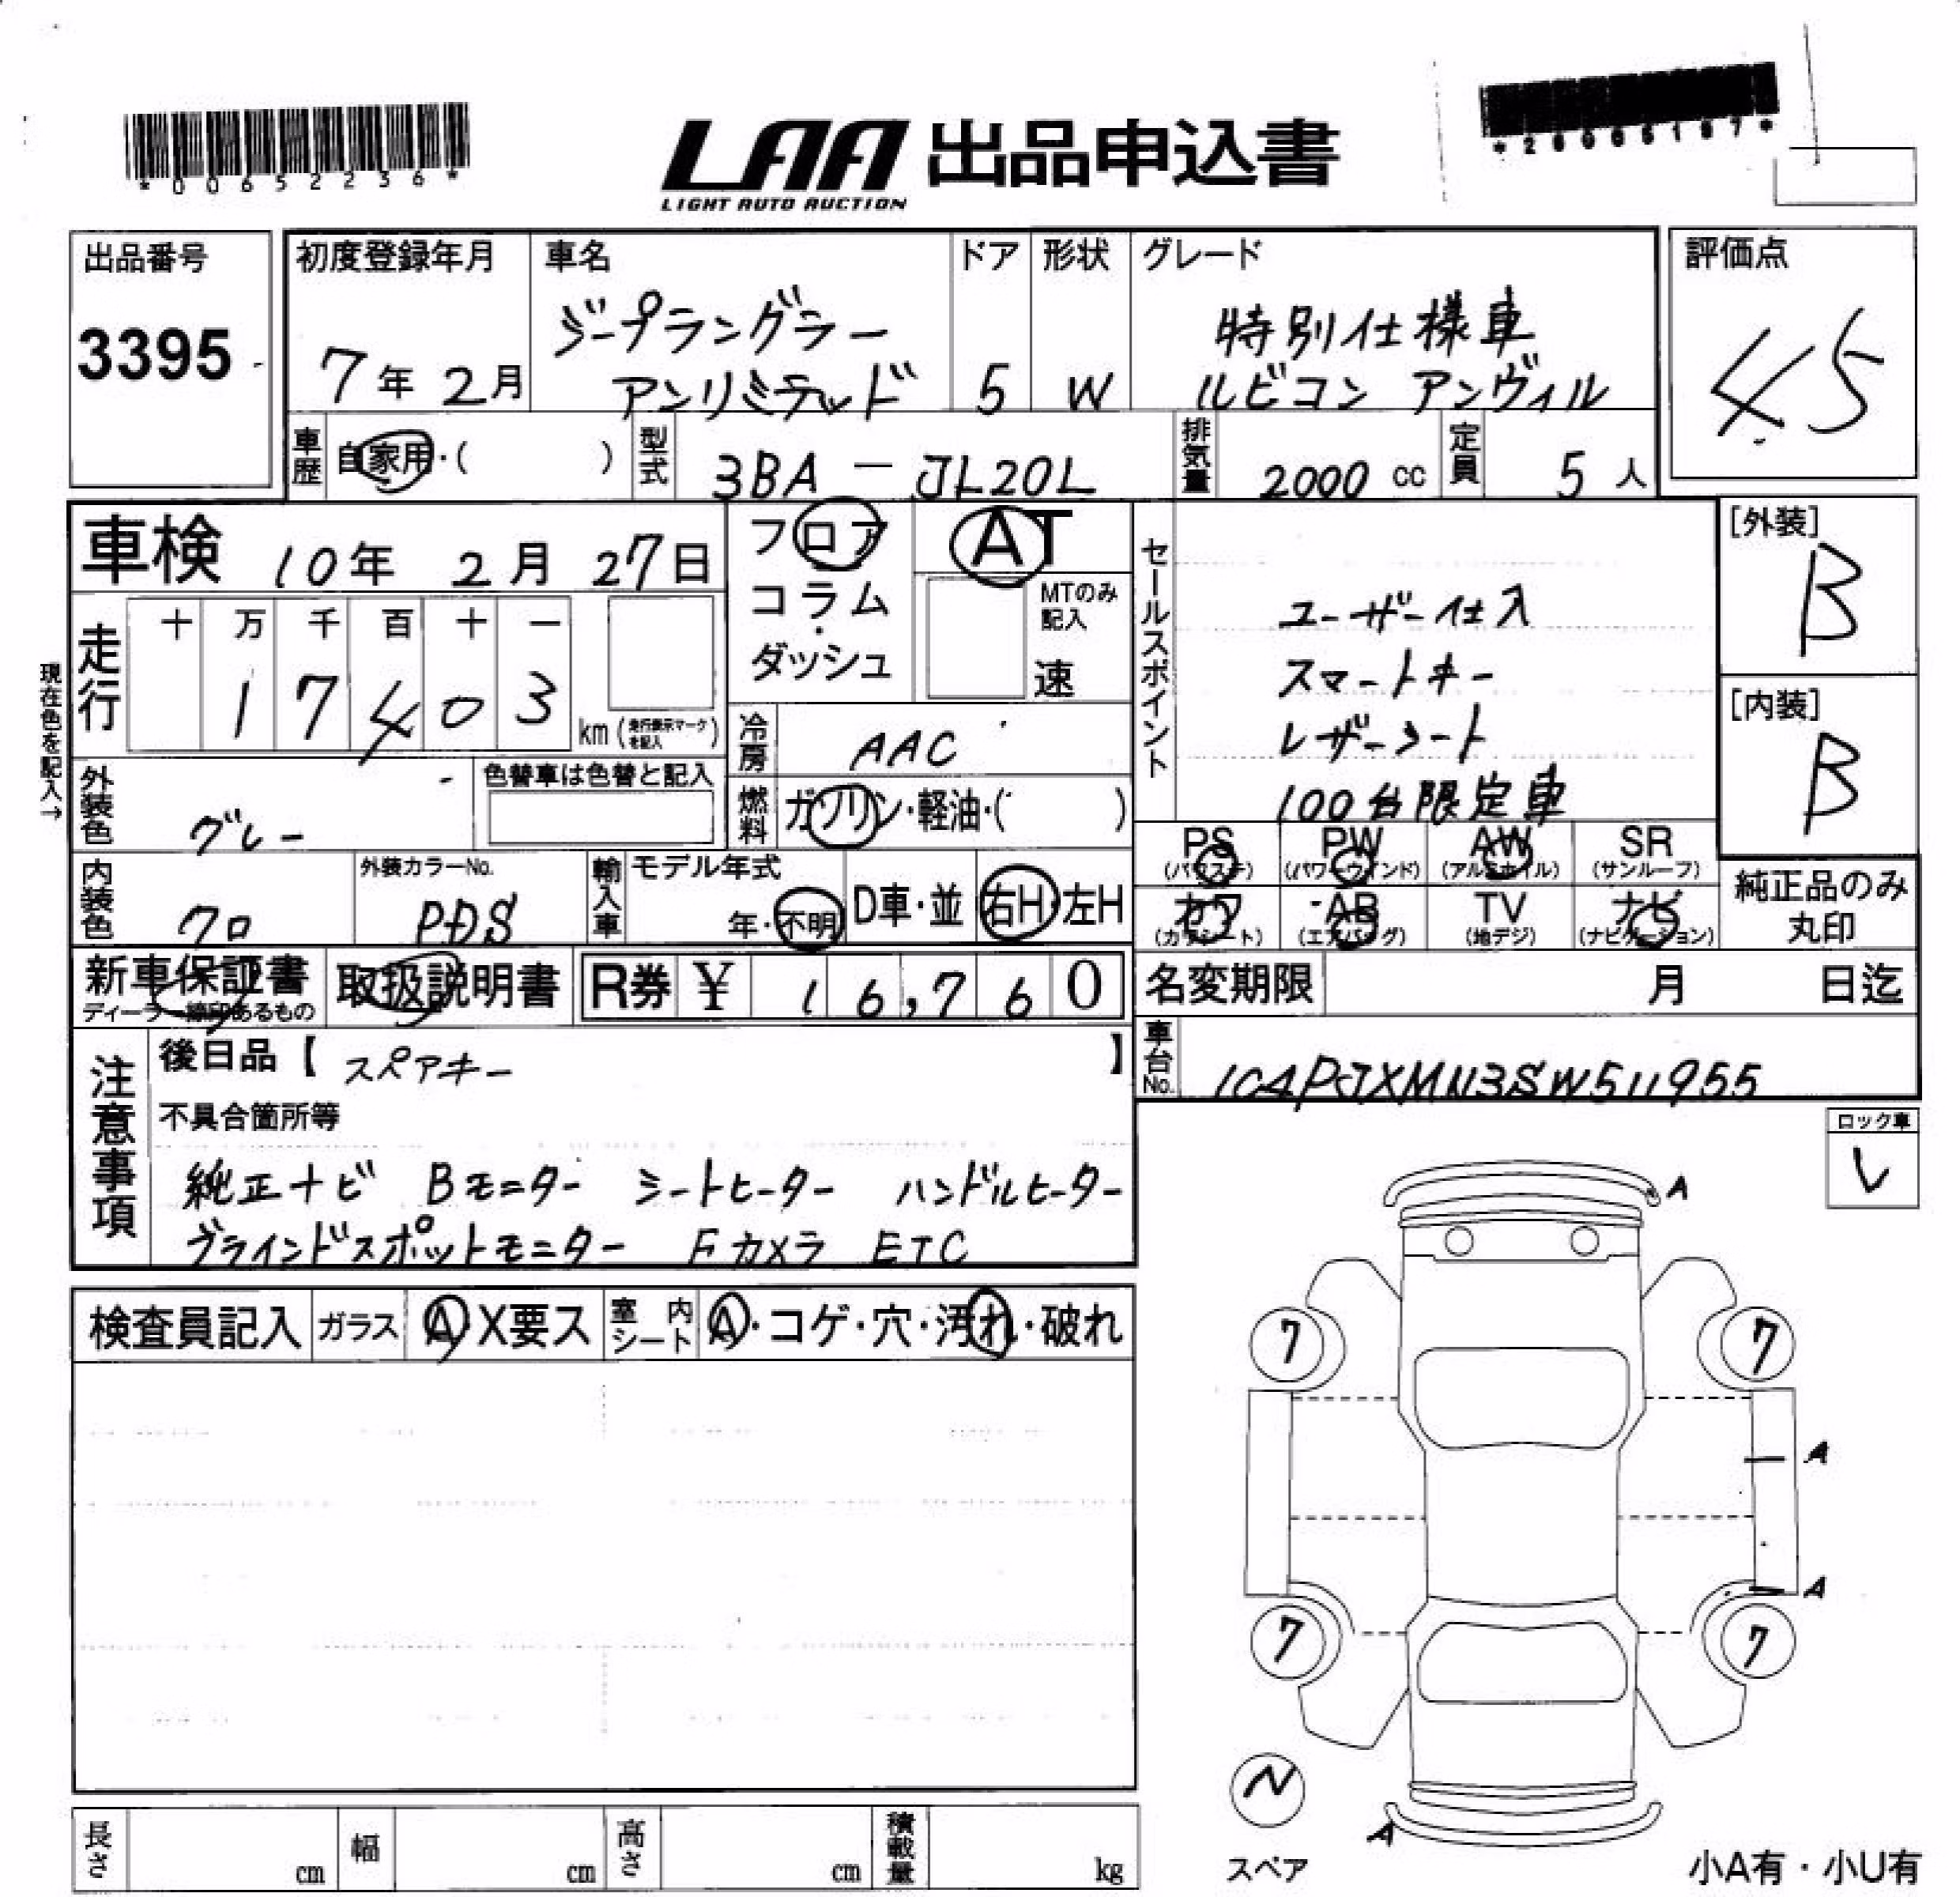 *00652236*
LAA 出品申込書
LIGHT AUTO AUCTION
*26006187*
出品番号
3395
初度登録年月
7年 2月
車名
ジープラングラー
アンリミテッド
ドア
5
形状
W
グレード
特別仕様車
ルビコン アンヴィル
評価点
4.5
車歴
自家用・( )
型式
3BA - JL20L
排気量
2000 cc
定員
5 人
車検 10年 2月 27日
フロア
コラム
・
ダッシュ
AT
MTのみ
記入
速
セールスポイント
ユーザー仕入
スマートキー
レザーシート
100台限定車
[外装]
B
[内装]
B
現在色を記入→
走行
十 万 千 百 十 一
1 7 4 0 3
km(走行表示マークを記入)
冷房
AAC
外装色
グレー
色替車は色替と記入
燃料
ガソリン・軽油・( )
PS
(パワステ)
PW
(パワーウインド)
AW
(アルミホイル)
SR
(サンルーフ)
カワ
(カワシート)
AB
(エアバッグ)
TV
(地デジ)
ナビ
(ナビゲーション)
純正品のみ
丸印
内装色
クロ
外装カラーNo.
PDS
輸入車
モデル年式
年・不明
D車・並
右H・左H
新車保証書
ディーラー捺印あるもの
取扱説明書
R券 ¥ 16,760
名変期限 月 日迄
車台No.
1C4PJXMN3SW511955
注意事項
後日品【 スペアキー 】
不具合箇所等
純正ナビ Bモニター シートヒーター ハンドルヒーター
ブラインドスポットモニター Fカメラ ETC
ロック車
レ
検査員記入
ガラス
A・X要ス
室内シート
A・コゲ・穴・汚れ・破れ
A
7
7
A
A
7
7
N
スペア
A
小A有・小U有
長さ cm
幅 cm
高さ cm
積載量 kg